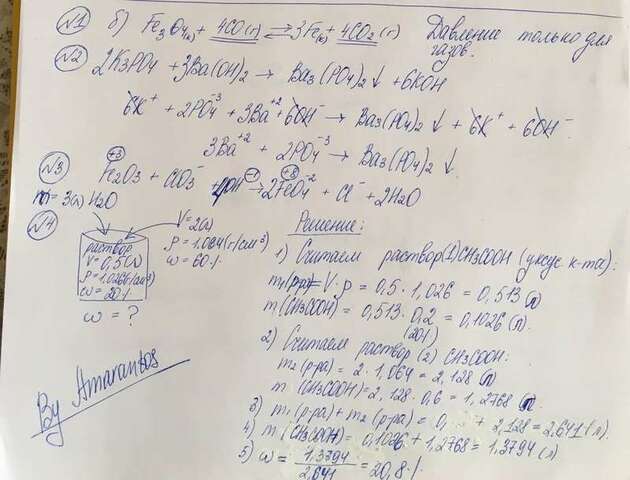 №1 б) Fe3O4(к) + 4CO(г) ⇄ 3Fe(к) + 4CO2(г) Давление только для
газов.
№2 2K3PO4 + 3Ba(OH)2 → Ba3(PO4)2 ↓ + 6KOH
6K+ + 2PO4-3 + 3Ba+2 + 6OH- → Ba3(PO4)2 ↓ + 6K+ + 6OH-
3Ba+2 + 2PO4-3 → Ba3(PO4)2 ↓
№3 +3 Fe2O3 + ClO3- -1 +8 → 2FeO4-2 + Cl- + 2H2O
m = 3(л) H2O
№4 V = 2(л)
ρ = 1.064(г/см3)
ω = 60%
раствор
V = 0,5(л)
ρ = 1.026(г/см3)
ω = 20%
ω = ?
By Amarantos
Решение:
1) Считаем раствор(1) CH3COOH (уксус к-та):
m1(р-ра) = V·ρ = 0,5 · 1,026 = 0,513 (л)
m(CH3COOH) = 0,513 · 0,2 = 0,1026 (л).
(20%)
2) Считаем раствор (2) CH3COOH:
m2 (р-ра) = 2 · 1,064 = 2,128 (л)
m (CH3COOH) = 2,128 · 0,6 = 1,2768 (л).
3) m1(р-ра) + m2(р-ра) = 0, + 2,128 = 2,641 (л)
4) m (CH3COOH) = 0,1026 + 1,2768 = 1,3794 (л)
5) ω = 1,3794 / 2,641 = 20,8%